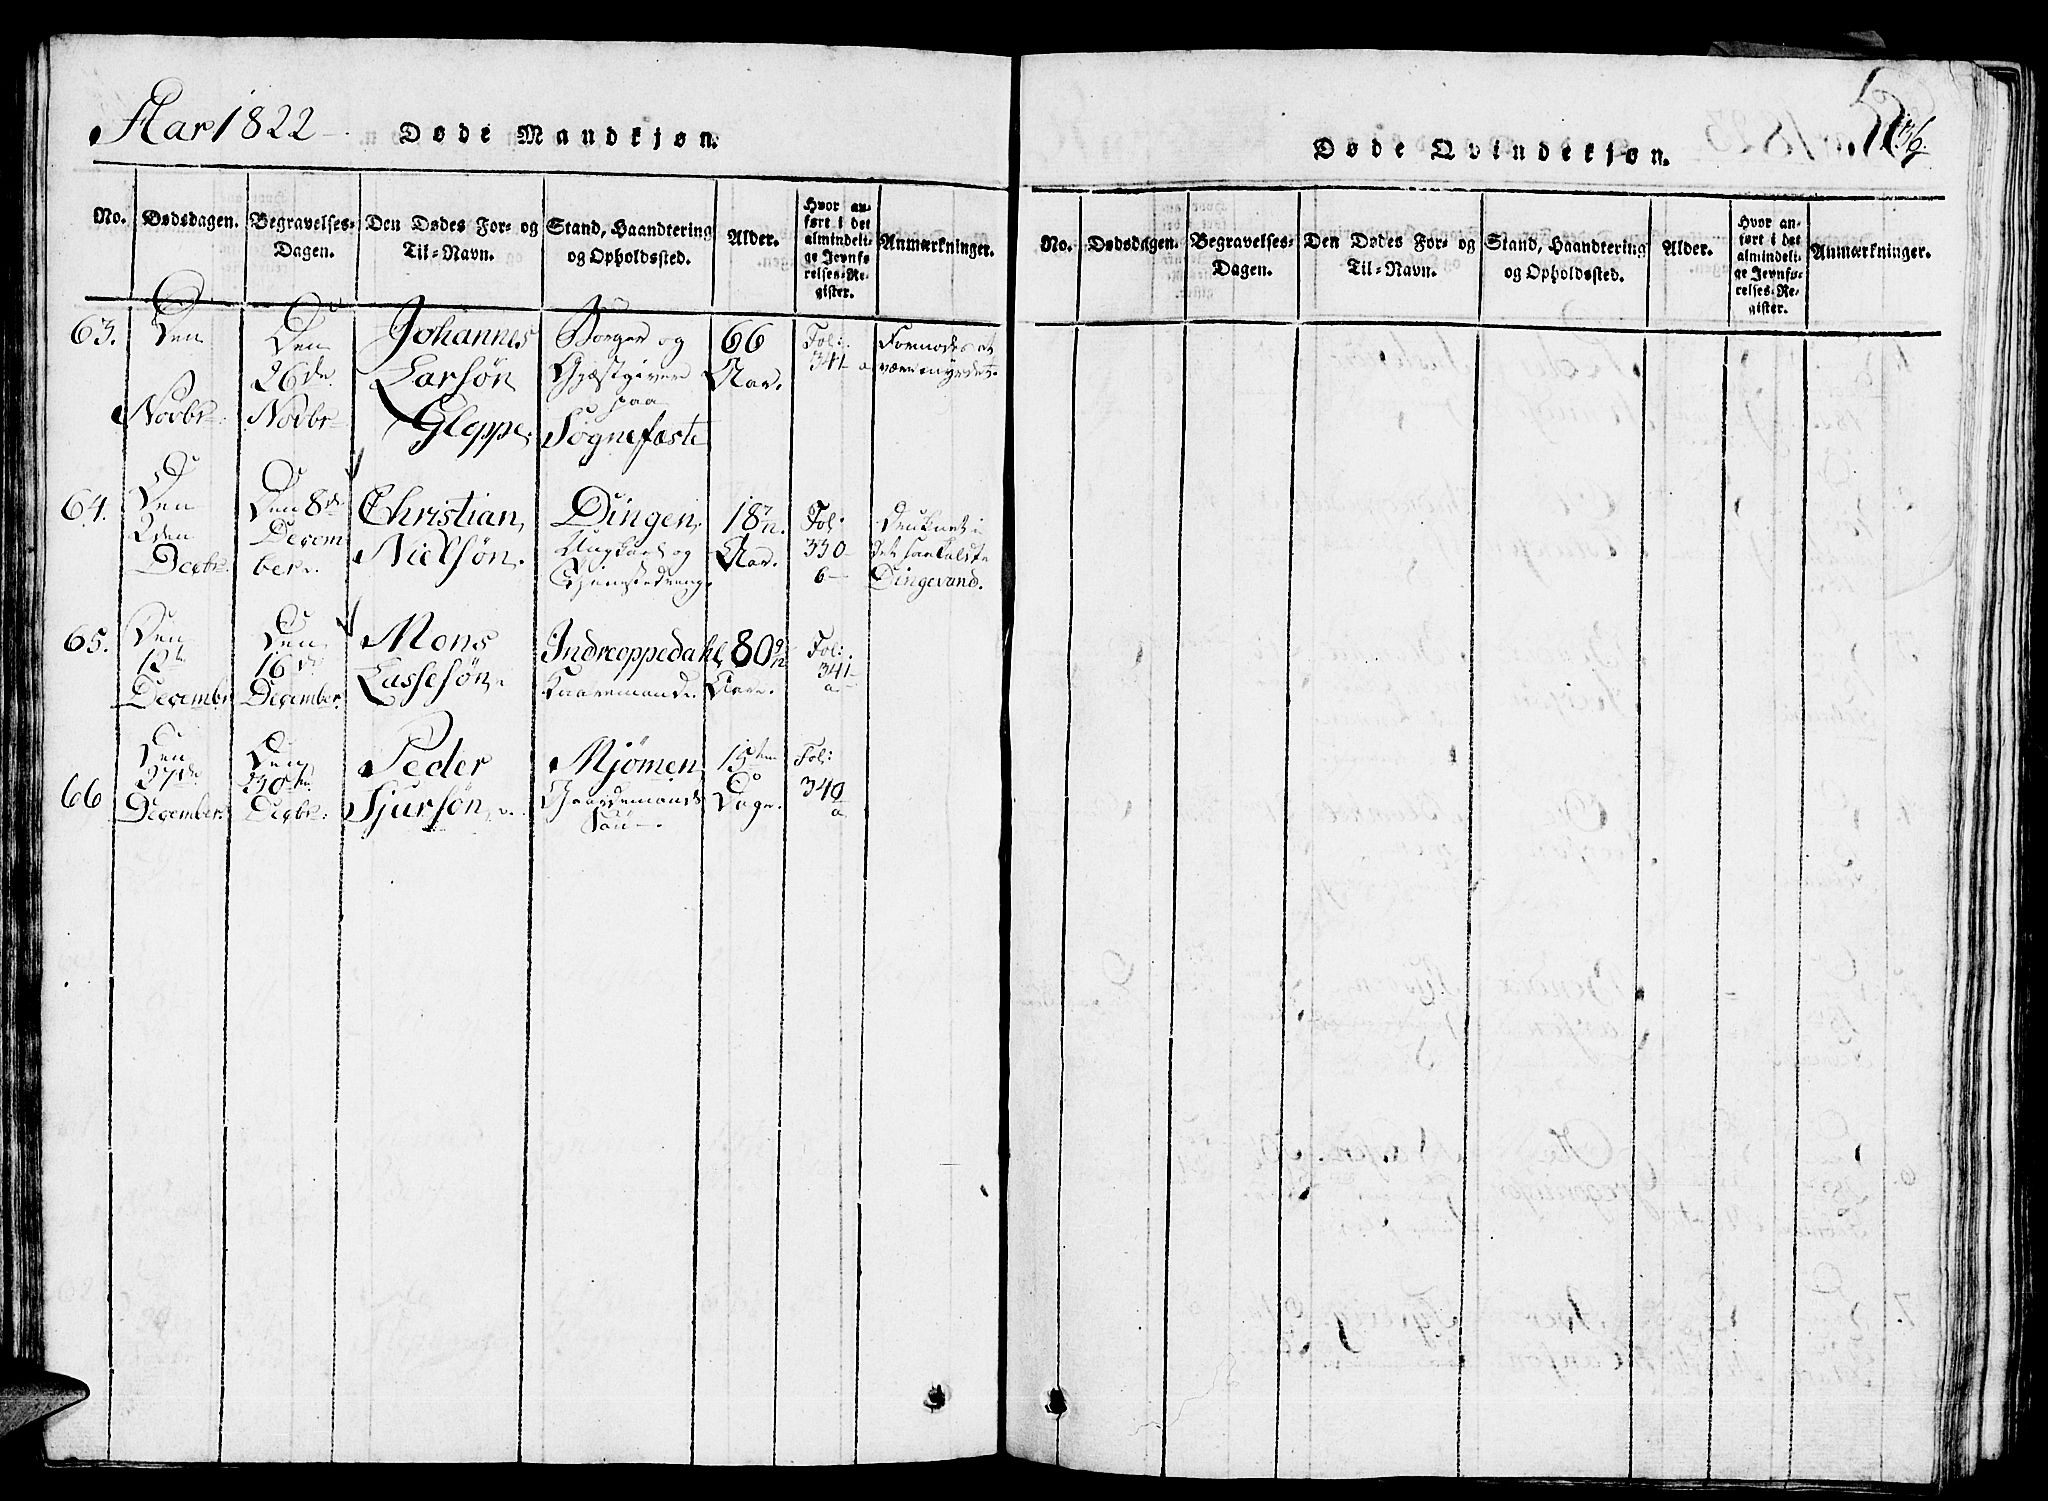 Aar 1822
Døde Mandkjøn.
No.
Dødsdagen.
Begravelses-
Dagen.
Den Dødes For- og
Til-Navn.
Stand, Haandtering
og Opholdssted.
Alder.
Hvor an-
ført i det
almindeli-
ge Jevnfø-
relses-Re-
gister.
Anmærkninger.
63.
Den
Novbr.
Den
26de
Novbr
Johannes
Larsøn
Gleppe.
Borger og
Gjæstgiver
paa
Sognefæste
66
Aar.
Fol:
341
a
Formodes at
være myrdet.
64.
Den
2den
Decbr.
Den 8de
Decem
ber.
Christian
Nielsøn.
Dingen,
Ungkarl og
Tjenestedreng.
18
Aar.
Fol:
330
b
Druknet i
Dingevand.
65.
Den
12te
December
Den
16de
December.
Mons
Lassesøn.
Indreoppedahl,
Kaaremand.
80 9/12
Aar.
Fol:
341
a
66
Den
27de
December.
Den
30te
Decbr.
Peder
Sjursøn.
Mjømen
Gaardemands
Søn.
15ten
Dage.
Fol:
340
a
Døde Qvindekjøn.
536.
No.
Dødsdagen.
Begravelses-
Dagen.
Den Dødes For- og
Til-Navn.
Stand, Haandtering
og Opholdssted.
Alder.
Hvor an-
ført i det
almindeli-
ge Jevnfø-
relses-Re-
gister.
Anmærkninger.